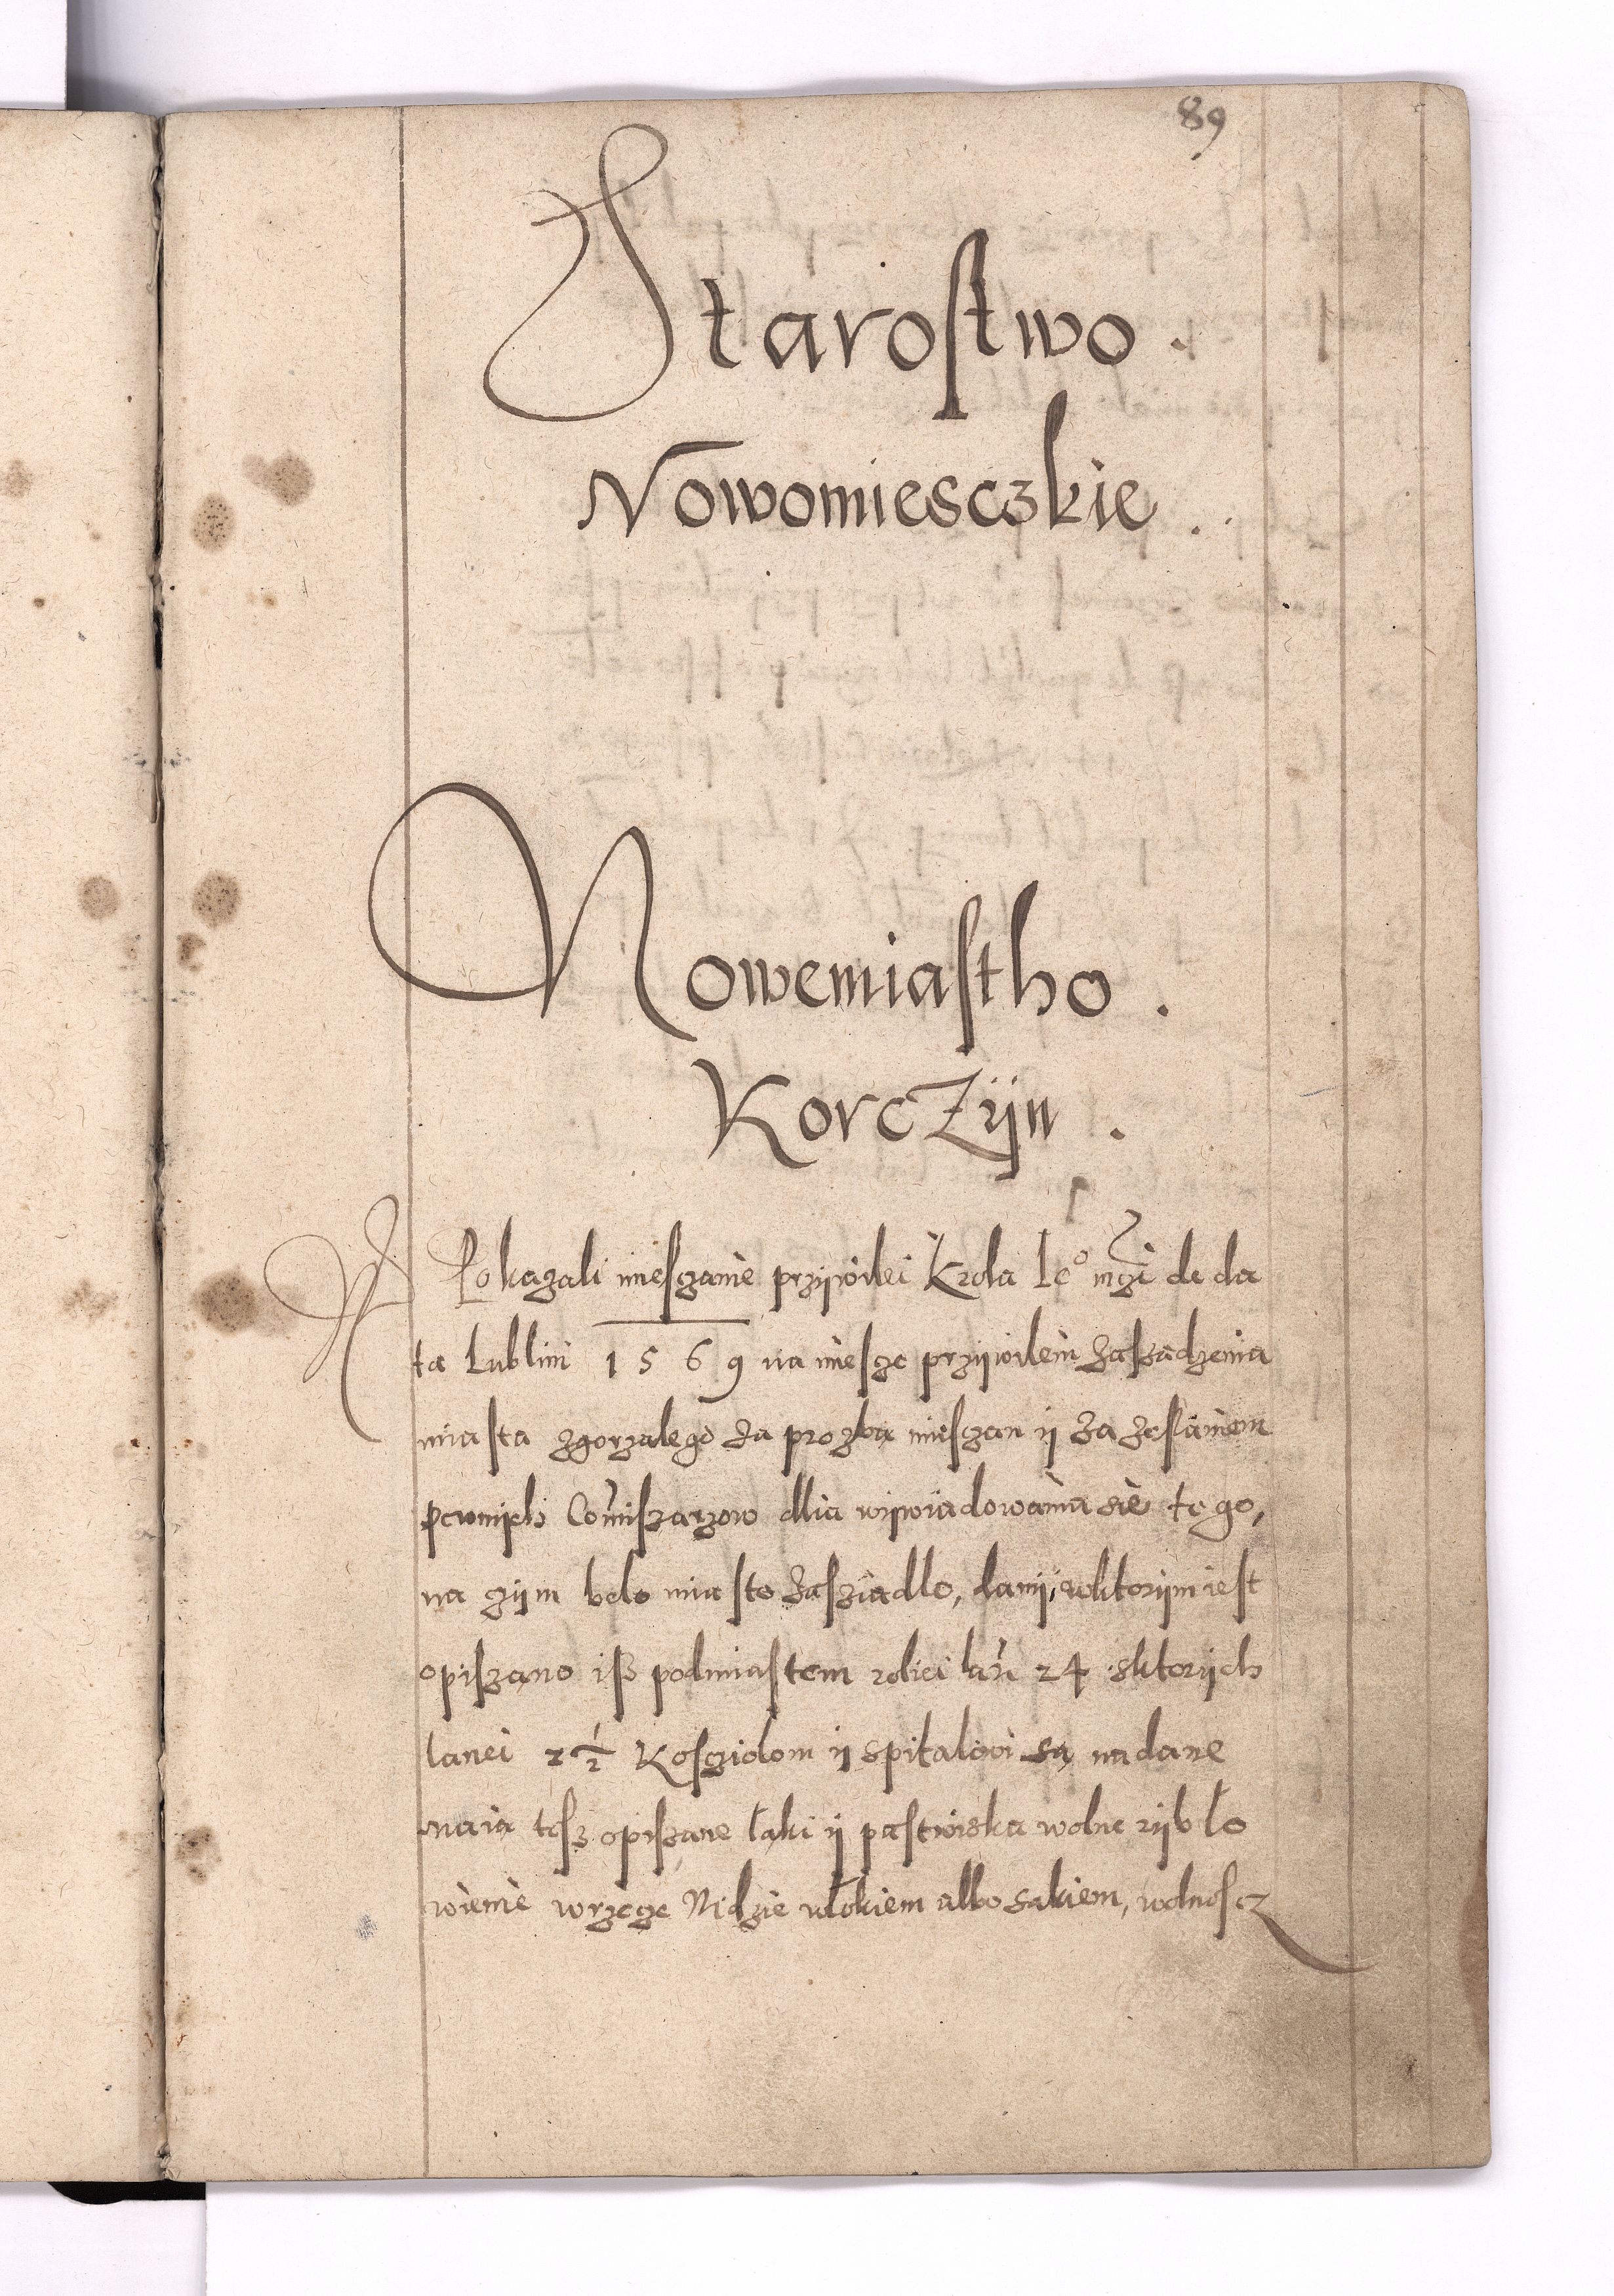 89
Starostwo.
Nowomiesczkie.
Nowemiastho.
Korczijn.
Pokazali miesczanie przijwilei Krola Ieo mczi de da
ta Lublini 1569 na miescze przijwileiu zaszadzenia
miasta zgorzalego za prozba mieszczan ij za zeslaniem
pewnijch Comiszarzow dlia wijwiadowania sie tego,
na czijm belo miasto zasziadlo, danij, wktorijm iest
opiszano isz podmiastem roliei lan 24 sktorijch
lanei 2 1/2 Kosciolom ij spitalowi są nadane
maia tesz opiszane łąki ij pastwiska wolne rijb ło
wienie wrzecze Nidzie włokiem albo sakiem, wolnoscz